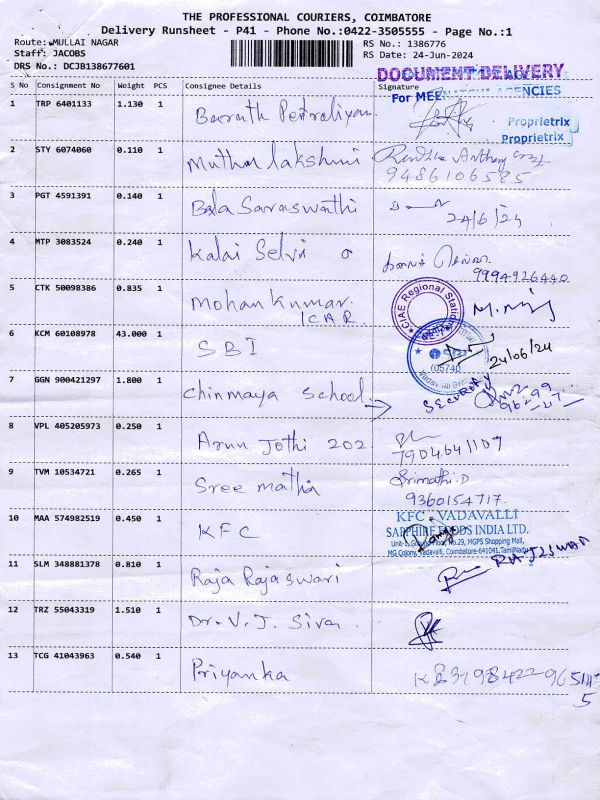 THE PROFESSIONAL COURIERS, COIMBATORE
Delivery Runsheet - P41 - Phone No.:0422-3505555 - Page No.:1
Route: MULLAI NAGAR
Staff: JACOBS
DRS No.: DCJB138677601
RS No.: 1386776
RS Date: 24-Jun-2024
DOCUMENT DELIVERY
S No Consignment No Weight PCS Consignee Details Signature
For MEENATCHI AGENCIES
1 TRP 6401133 1.130 1 Barath
Proprietrix
Proprietrix
2 STY 6074060 0.110 1 Muthu lakshmi
9486106585
3 PGT 4591391 0.140 1 Bala Saraswathi
24/6/24
4 MTP 3083524 0.240 1 Kalai Selvi
9994926440
5 CTK 50098386 0.835 1 Mohan Kumar.
ICAR
CIAE Regional Station
6 KCM 60108978 43.000 1 SBI
24/06/24
05740
Vadavalli
7 GGN 900421297 1.800 1 Chinmaya School
SECURITY
8 VPL 405205973 0.250 1 Arun Jothi 202
7904641109
9 TVM 10534721 0.265 1 Sree matha
Srimathi.D
9360154717.
10 MAA 574982519 0.450 1 KFC
KFC - VADAVALLI
SAPPHIRE FOODS INDIA LTD.
Unit-3, Ground Floor, No.29, MGPS Shopping Mall,
MG Colony, Vadavalli, Coimbatore-641041, TamilNadu
11 SLM 348881378 0.810 1 Raja Rajaswari
12 TRZ 55043319 1.510 1 Dr. V. J. Siva
13 TCG 41043963 0.540 1 Priyanka